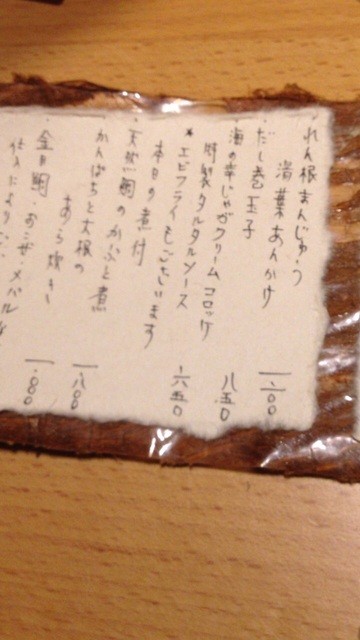 ・れん根まんじゅう
湯葉あんかけ
・だし巻玉子
・海の幸じゃがクリームコロッケ 八五0
特製タルタルソース
*エビフライもございます
・本日の煮付 一六五0
・天然鯛のかぶと煮
・かんぱちと大根の
あら炊き 一八00
金目鯛・おこぜ・メバル
仕入により